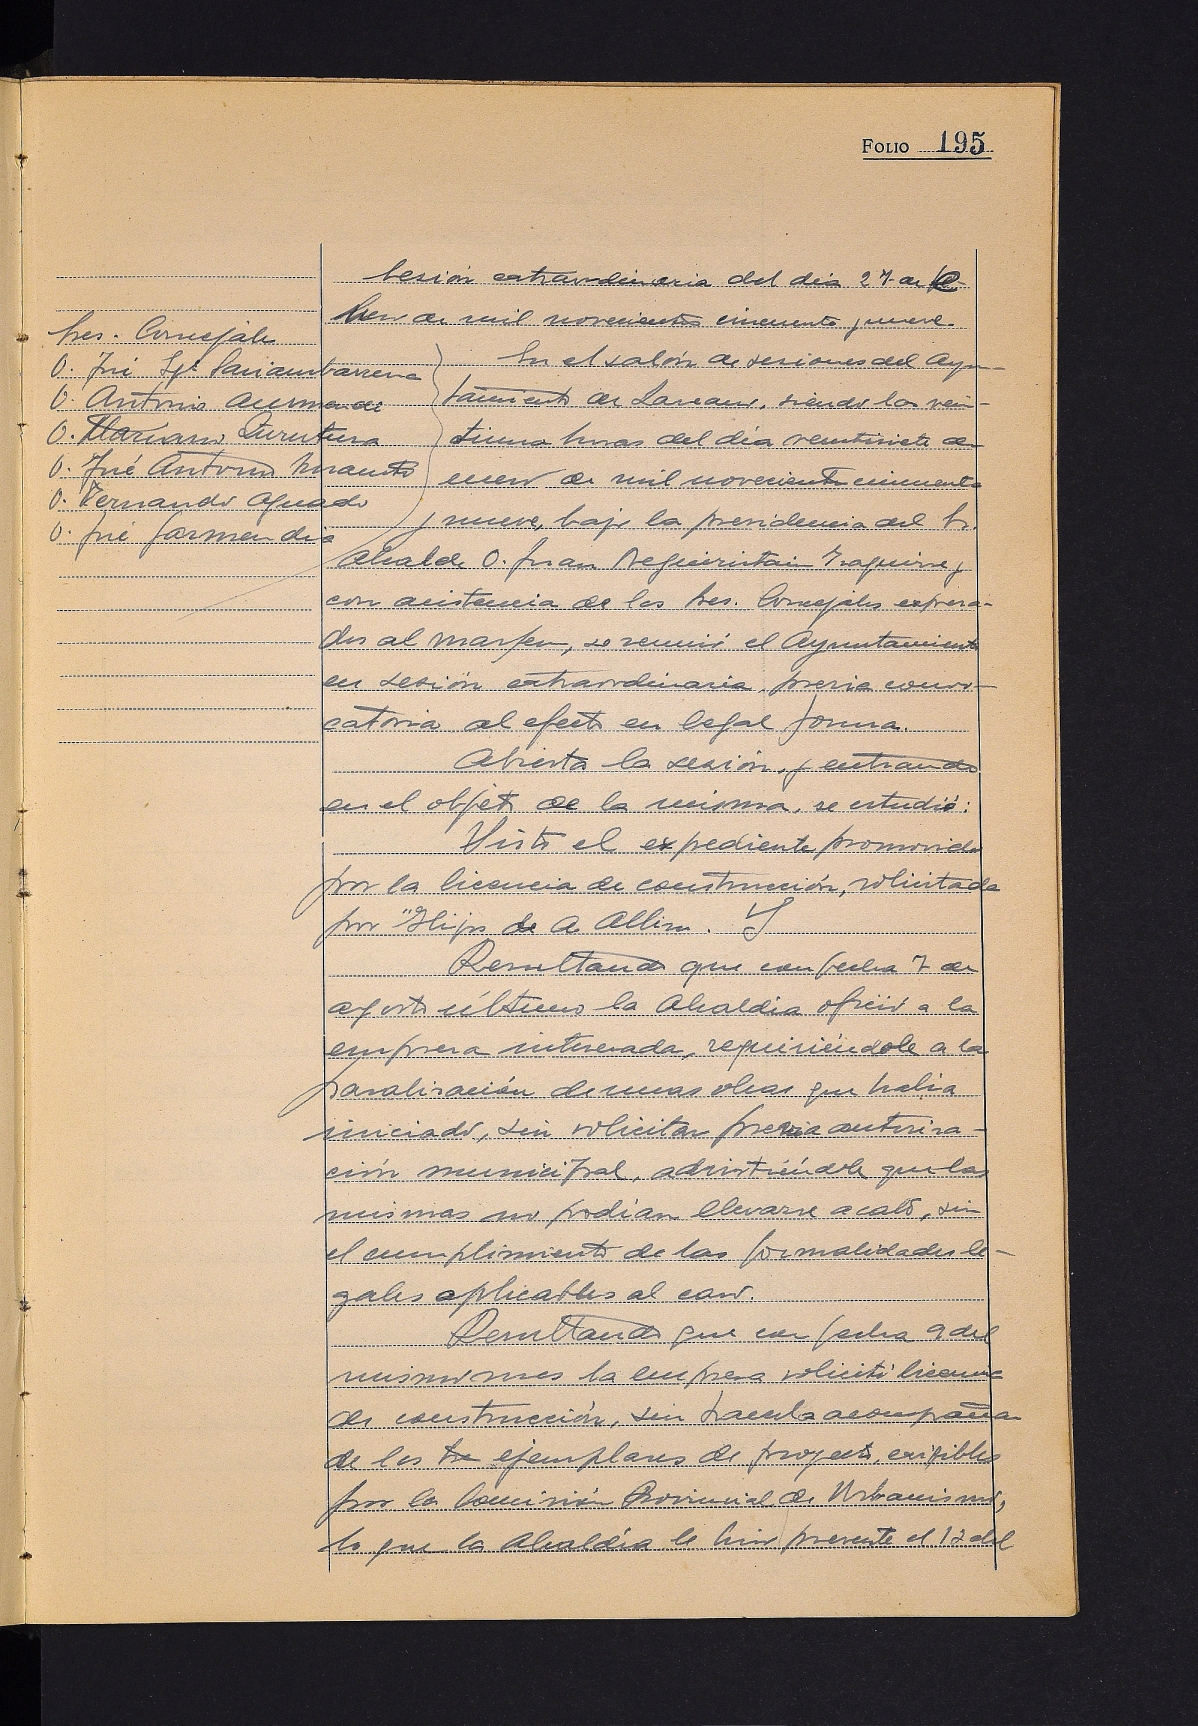 FOLIO 195
Sesión extraordinaria del dia 27 de
de mil novecientos cincuenta y nueve.
Sres. Concejales
D. José Igº
D. Antonio
D. Mariano
D. José Antonio
D. Fernando Aguado
D. José Garmendia
En el salón de sesiones del Ayun-
tamiento de Lasao, siendo las vein-
tiuna horas del día veintisiete de
enero de mil novecientos cincuenta
y nueve, bajo la presidencia del Sr.
Alcalde D. Juan Reguiristain Izaguirre, y
con asistencia de los Sres. Concejales expresa-
dos al margen, se reunió el Ayuntamiento
en sesión extraordinaria, previa convo-
catoria al efecto en legal forma.
Abierta la sesión, y entrando
en el objeto de la misma, se estudió:
Visto el expediente promovido
por la licencia de construcción, solicitada
por "Hijos de A. Allim. Y
Resultando que con fecha 7 de
agosto último la Alcaldia ofició a la
empresa interesada, requiriéndole a la
paralización de unas obras que habia
iniciado, sin solicitar previa autoriza-
ción municipal, advirtiéndole que las
mismas no podían llevarse a cabo, sin
el cumplimiento de las formalidades le-
gales aplicables al caso.
Resultando que con fecha 9 del
mismo mes la empresa solicitó licencia
de construcción, sin hacerla acompañar
de los tre ejemplares de proyecto, exigibles
por la Comisión Provincial de Urbanismo,
lo que la Alcaldía le hizo presente el 12 del